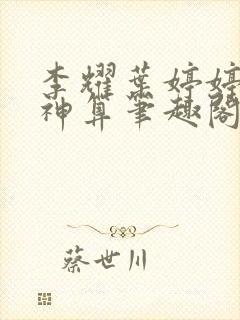 李耀葉婷婷
神算筆趣閣
蔡世川